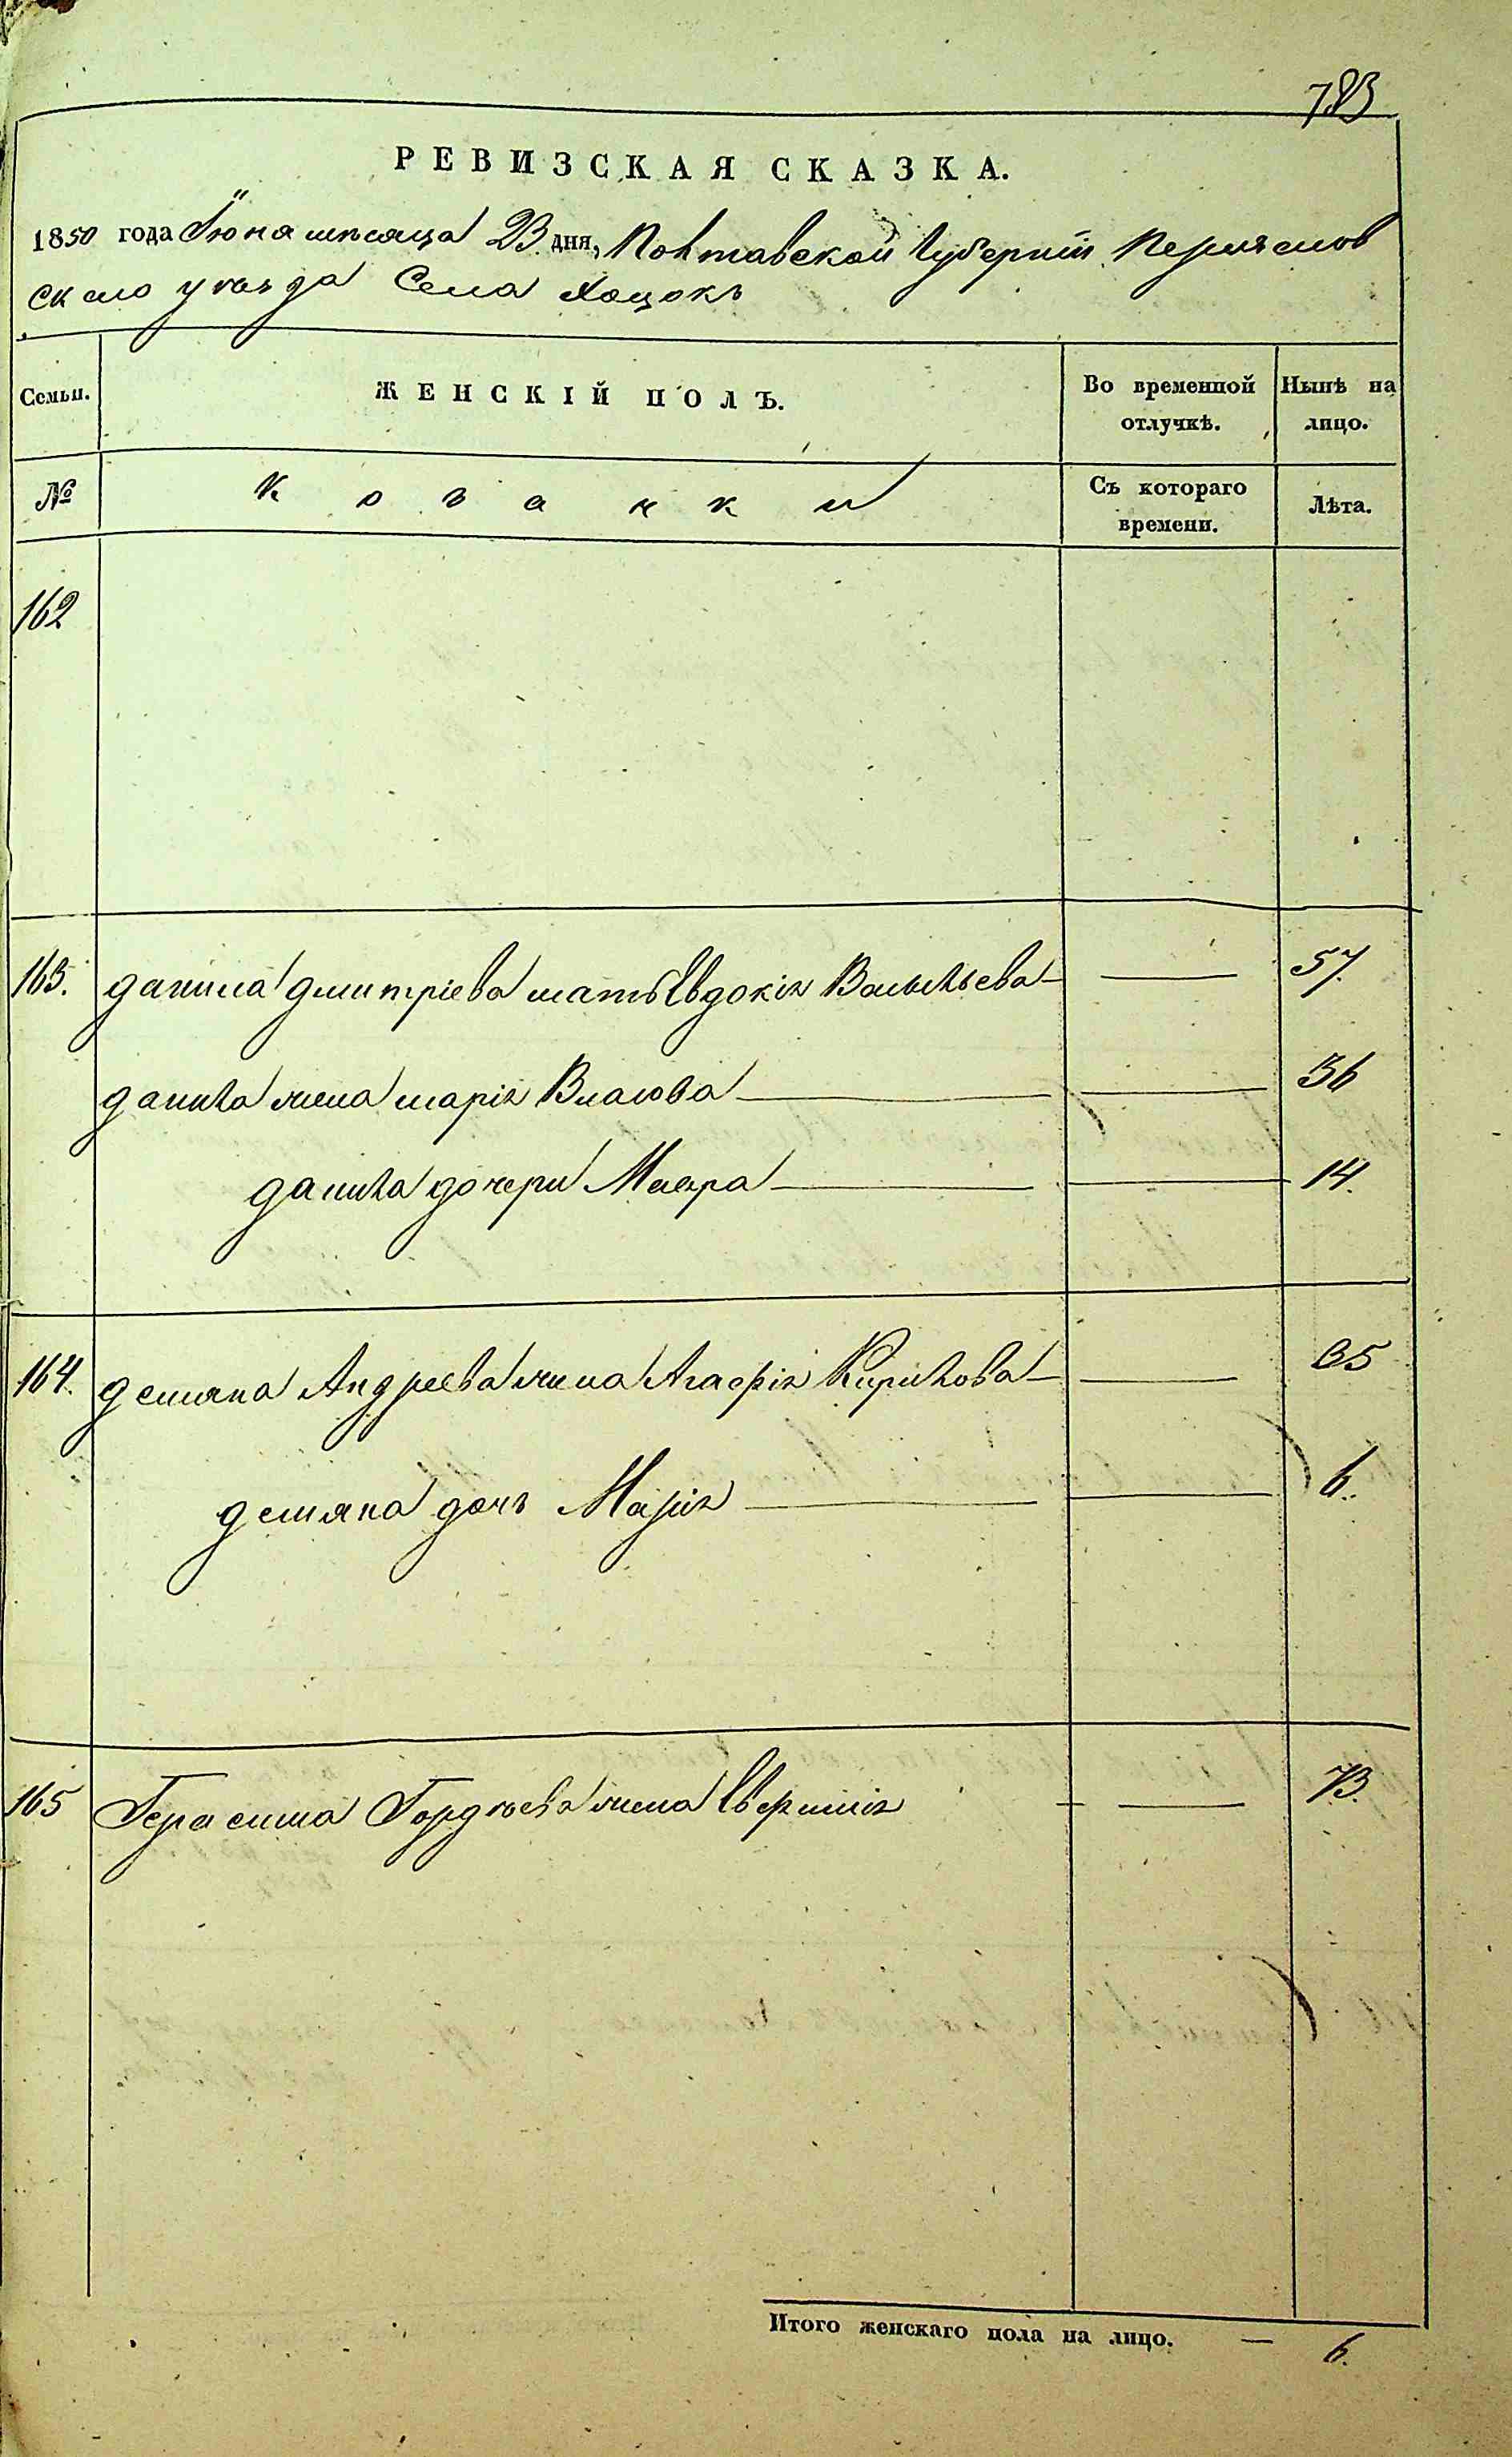 783
РЕВИЗСКАЯ СКАЗКА.
1850 года Іюня мѣсяца 23 дня, Полтавской Губерніи Переяслов
скаго уѣзда Села Хоцокъ
Семьи. ЖЕНСКІЙ ПОЛЪ. Во временной отлучкѣ. Нынѣ на лицо.
№ Козачки Съ котораго времени. Лѣта.
162
163. Данила Дмитріева мать Евдокія Васильева — 57.
Данила жена Марія Власова — 36
Данила дочери Мавра — 14.
164. Демяна Андреева жена Агафія Кирилова — 35
Демяна дочь Марія — 6.
165 Герасима Гордѣева жена Евфимія — 73.
Итого женскаго пола на лицо. — 6.